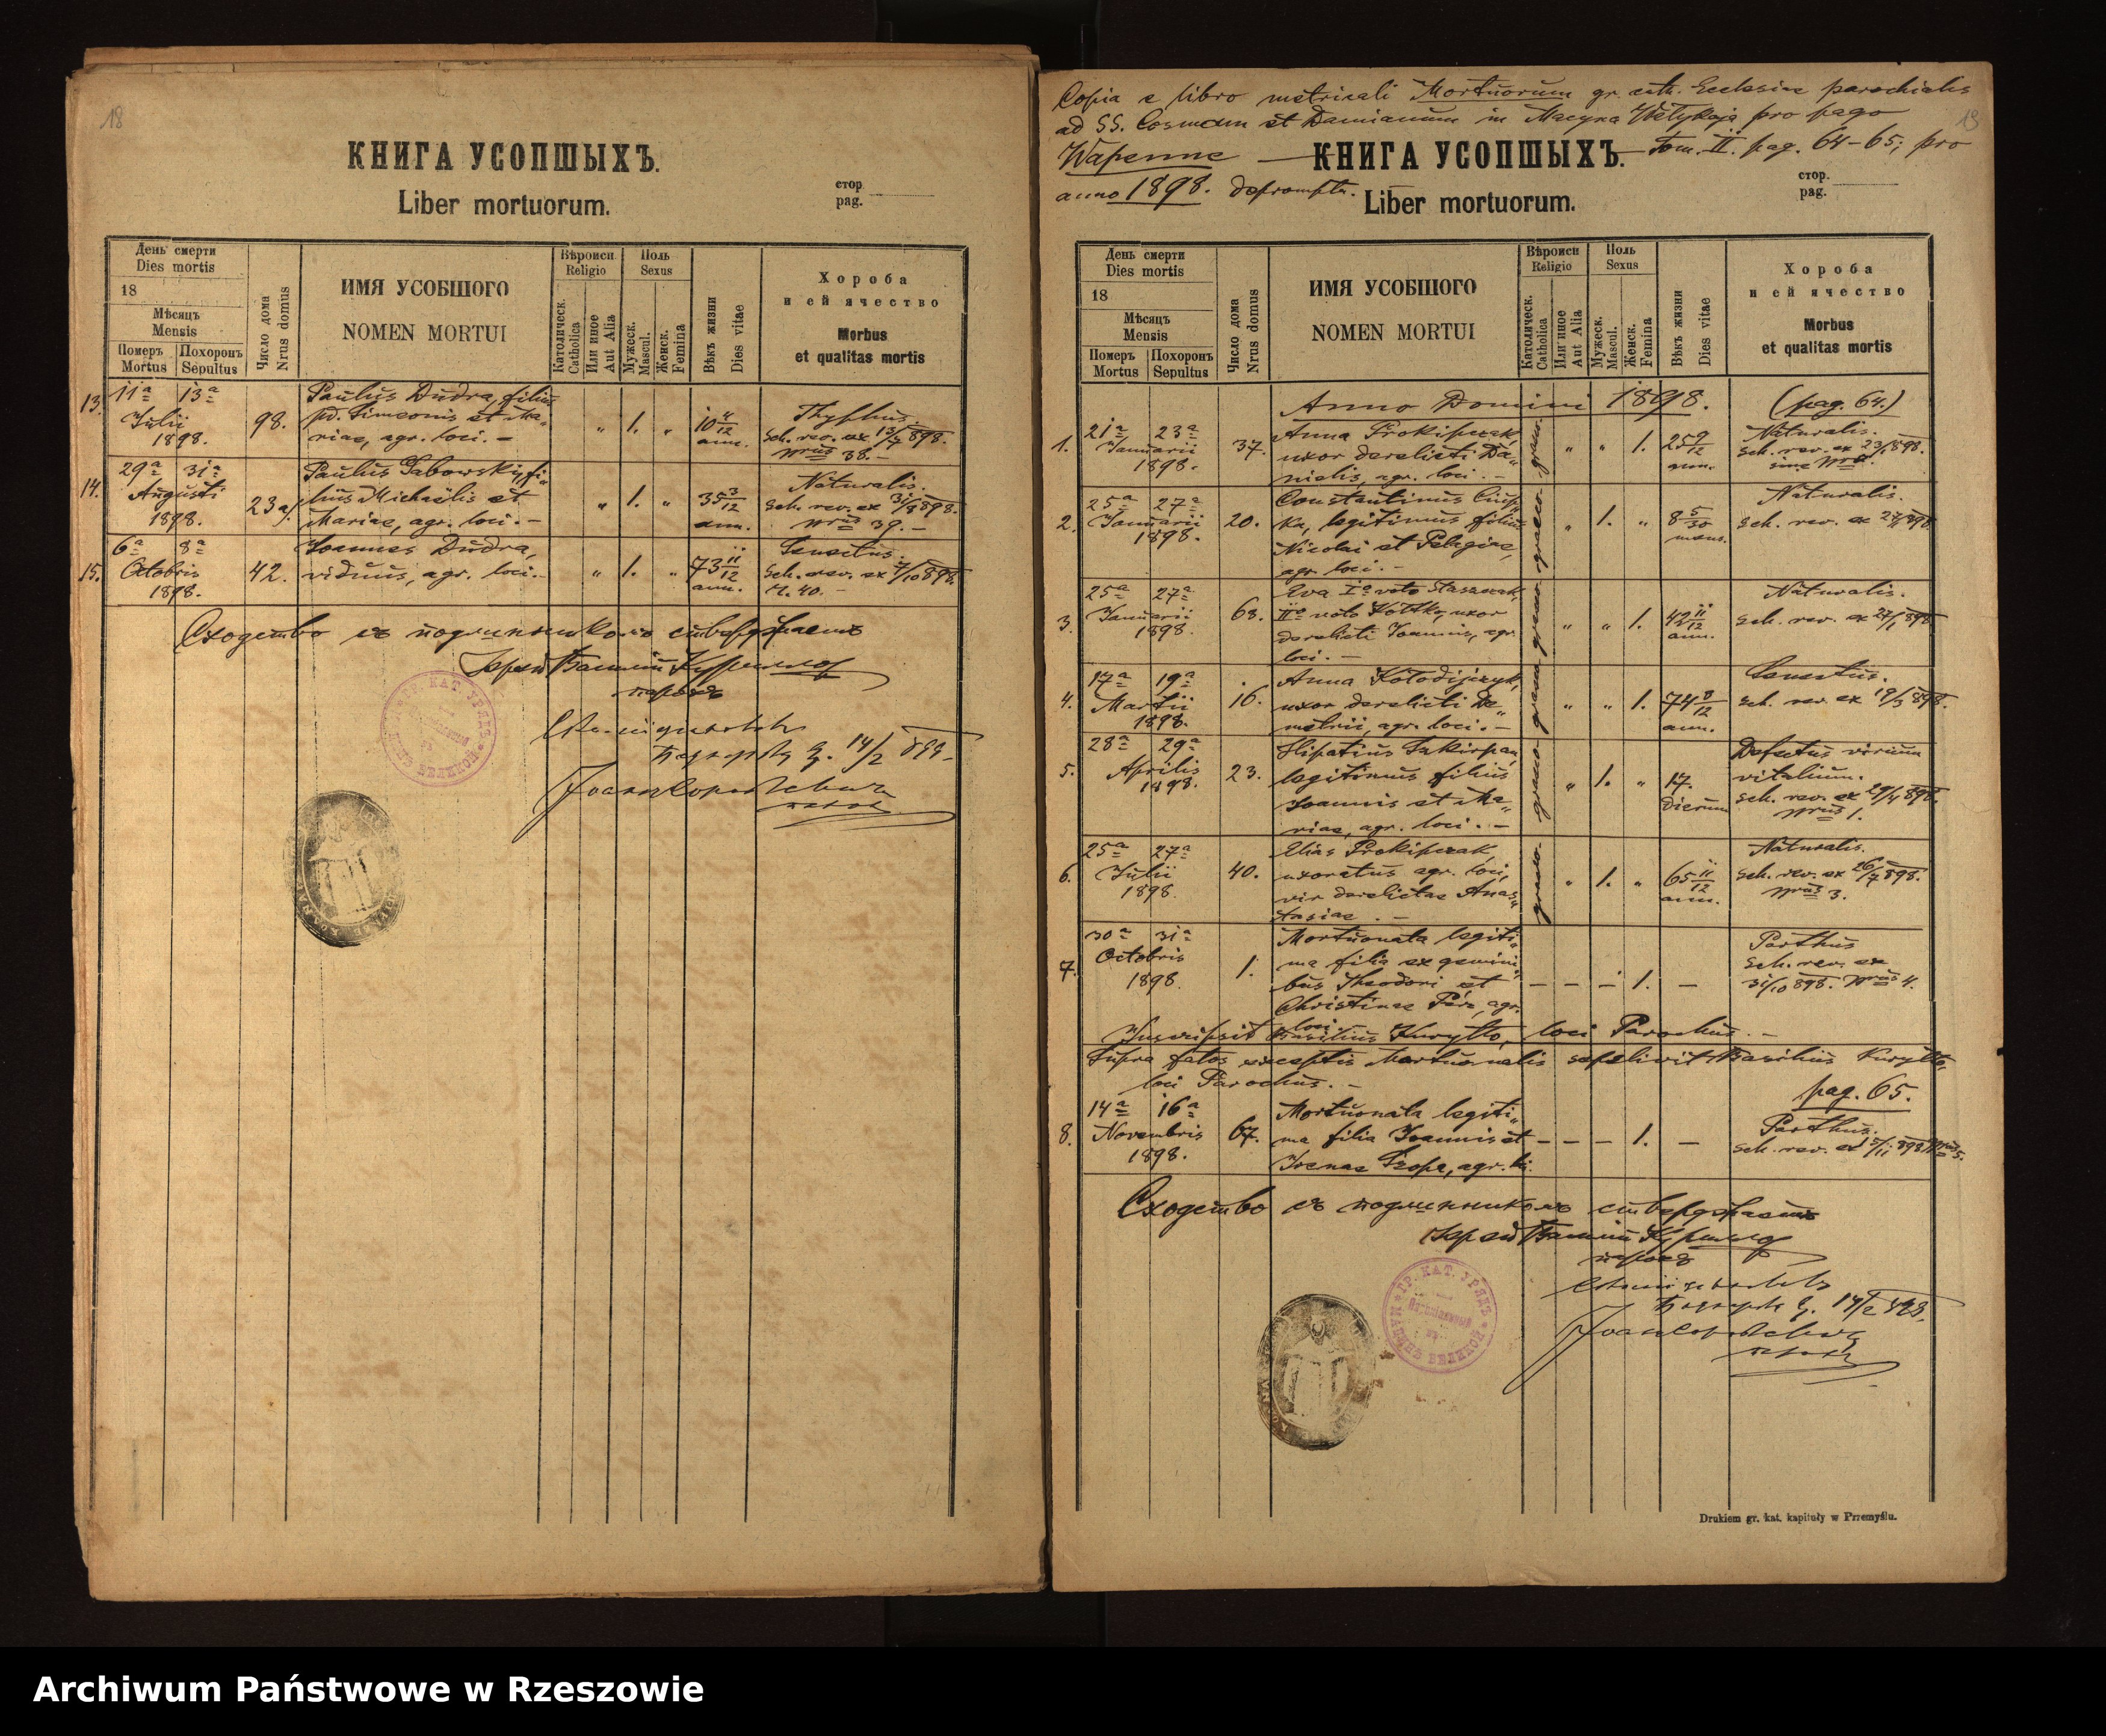 18
КНИГА УСОПШЫХЪ.
Liber mortuorum.
стор.
pag.
День смерти
Dies mortis
18
Мѣсяцъ
Mensis
Померъ
Mortus
Похоронъ
Sepultus
Число дома
Nrus domus
ИМЯ УСОБШОГО
NOMEN MORTUI
Вѣроисп
Religio
Католическ.
Catholica
Или иное
Aut Alia
Поль
Sexus
Мужеск.
Mascul.
Женск.
Femina
Вѣкъ жизни
Dies vitae
Хороба
и ей ячество
Morbus
et qualitas mortis
13. 11ª 13ª Julii 1898. 98.
Paulus Dudra, filius
pd. Simeonis et Ma„
riae, agr. loci. –
„ 1. „ 10 4/12 ann.
Thyphus.
Sch. rev. ex 13/7 898.
Nrus 38. –
14. 29ª 31ª Augusti 1898. 23 a/.
Paulus Gabowski, fi„
lius Michaëlis et
Mariae, agr. loci. –
„ 1. „ 35 3/12 ann.
Naturalis.
Sch. rev. ex 31/8 898.
Nrus 39. –
15. 6ª 8ª Octobris 1898. 42.
Joannes Dudra,
viduus, agr. loci. –
„ 1. „ 73 11/12 ann.
Senectus.
Sch. rev. ex 7/10 898.
N. 40. –
Сходство съ подлинникомъ стверджаетъ
Іерей Василій Курилло
парохъ
14/2 899
19
Copia e libro metricali Mortuorum gr. cath. Ecclesiae parochialis
ad SS. Cosmam et Damianum in Męcyna Wielykaja pro pago
Wapenne — Tom. II. pag. 64–65; pro
anno 1898. deprompta.
КНИГА УСОПШЫХЪ.
Liber mortuorum.
стор.
pag.
День смерти
Dies mortis
18
Мѣсяцъ
Mensis
Померъ
Mortus
Похоронъ
Sepultus
Число дома
Nrus domus
ИМЯ УСОБШОГО
NOMEN MORTUI
Вѣроисп
Religio
Католическ.
Catholica
Или иное
Aut Alia
Поль
Sexus
Мужеск.
Mascul.
Женск.
Femina
Вѣкъ жизни
Dies vitae
Хороба
и ей ячество
Morbus
et qualitas mortis
Anno Domini 1898. (pag. 64.)
1. 21ª 23ª Januarii 1898. 37.
Anna Prokipczak,
uxor derelicti Da„
nielis, agr. loci. –
graeco „ „ 1. 25 9/12 ann.
Naturalis.
Sch. rev. ex 23/1 898.
sine Nro.
2. 25ª 27ª Januarii 1898. 20.
Constantinus Ciup„
ka, legitimus filius
Nicolai et Pelagiae,
agr. loci. –
graeco „ 1. „ 8 5/30 mens.
Naturalis.
Sch. rev. ex 27/1 898.
3. 25ª 27ª Januarii 1898. 68.
Eva Iº voto Staszczak,
IIº voto Kottko, uxor
derelicti Joannis, agr.
loci. –
graeco „ „ 1. 42 11/12 ann.
Naturalis.
Sch. rev. ex 27/1 898.
4. 17ª 19ª Martii 1898. 16.
Anna Kołodijczyk,
uxor derelicti De„
metrii, agr. loci. –
graeco „ „ 1. 74 8/12 ann.
Senectus.
Sch. rev. ex 19/3 898.
5. 28ª 29ª Aprilis 1898. 23.
Hipatius Szkirpan,
legitimus filius
Joannis et Ma„
riae, agr. loci. –
graeco „ 1. „ 17. dierum
Defectus virium
vitalium.
Sch. rev. ex 29/4 898.
Nrus 1.
6. 25ª 27ª Julii 1898. 40.
Elias Prokipczak,
uxoratus agr. loci,
vir derelictae Anas„
tasiae. –
graeco „ 1. „ 65 11/12 ann.
Naturalis.
Sch. rev. ex 26/7 898.
Nrus 3.
7. 30ª 31ª Octobris 1898. 1.
Mortuonata legiti„
ma filia ex gemini„
bus Theodori et
Christinae Pyrz, agr.
loci.
– – – 1. –
Parthus
Sch. rev. ex
31/10 898. Nrus 4.
Inscripsit Basilius Kuryłło, loci Parochus. –
Supra fatos exceptis Mortuonatis sepelivit Basilius Kuryłło,
loci Parochus. –
pag. 65.
8. 14ª 16ª Novembris 1898. 67.
Mortuonata legiti„
ma filia Joannis et
Irenae Szopa, agr. loci.
– – – 1. –
Parthus.
Sch. rev. ex 15/11 898 Nrus 5.
Сходство съ подлинникомъ стверджаетъ
Іерей Василій Курилло
парохъ
14/2 899.
Drukiem gr. kat. kapituły w Przemyślu.
Archiwum Państwowe w Rzeszowie